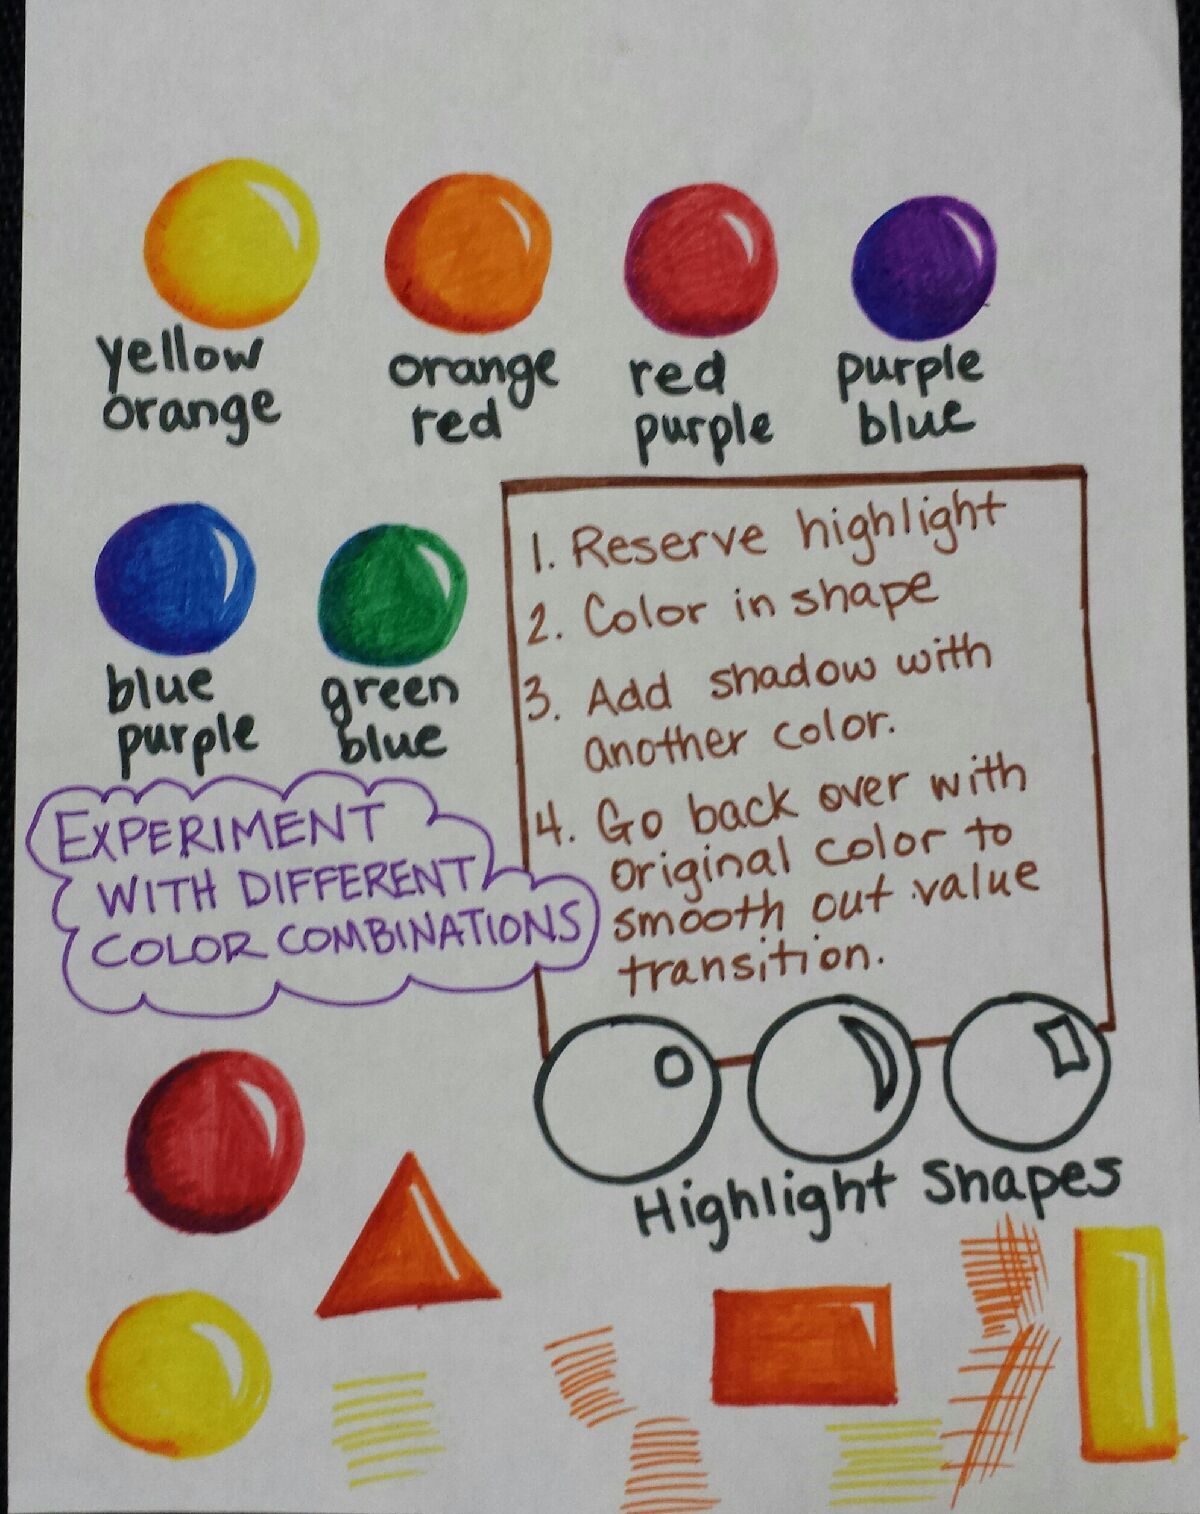 yellow
orange
orange
red
red
purple
purple
blue
blue
purple
green
blue
1. Reserve highlight
2. Color in shape
3. Add shadow with
another color.
4. Go back over with
original color to
smooth out value
transition.
EXPERIMENT
WITH DIFFERENT
COLOR COMBINATIONS
Highlight Shapes